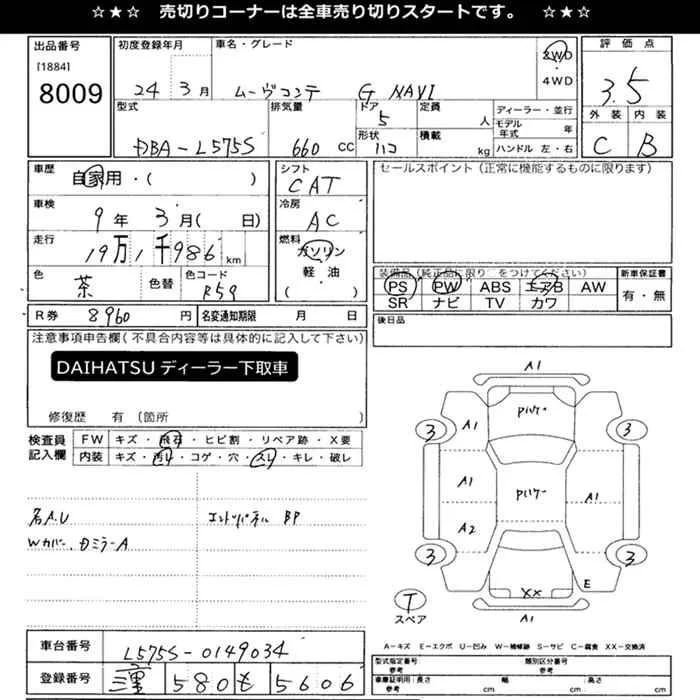 ☆★☆ 売切りコーナーは全車売り切りスタートです。 ☆★☆
出品番号
[1884]
8009
初度登録年月
24年 3月
車名・グレード
ムーヴコンテ G NAVI
2WD
4WD
評価点
3.5
外装 内装
C B
型式
DBA-L575S
排気量
660 cc
ドア
5
形状
ハコ
定員
人
積載
kg
ディーラー・並行
モデル年式 年
ハンドル 左・右
車歴
自家用・( )
車検
9年 3月( 日)
走行
19万1千986 km
色
茶
色替
色コード
R59
シフト
CAT
冷房
AC
燃料
ガソリン
軽・油
( )
セールスポイント(正常に機能するものに限ります)
装備品(純正品に限り ををつけてください)
PS PW ABS エアB AW
SR ナビ TV カワ
新車保証書
有・無
R券 8960 円
名変通知期限 月 日
後日品
注意事項申告欄(不具合内容等は具体的に記入して下さい)
DAIHATSU ディーラー下取車
修復歴 有(箇所 )
検査員記入欄
FW キズ・飛石・ヒビ割・リペア跡・X要
内装 キズ・汚レ・コゲ・穴・スレ・キレ・破レ
各A.U
Wカバー、Dミラー A
エンドパネル BP
A1
Pハゲー
3 A1 3
A1 Pハゲー A1
A2
3 3
XX E
T
スペア
A1
A-キズ E-エクボ U-凹み W-補修跡 S-サビ C-腐食 XX-交換済
車台番号 L575S-0149034
登録番号 三重 580 も 5606
型式指定番号
参考
類別区分番号
参考
車庫証明用:長さ 参考 cm
幅 cm
高さ cm